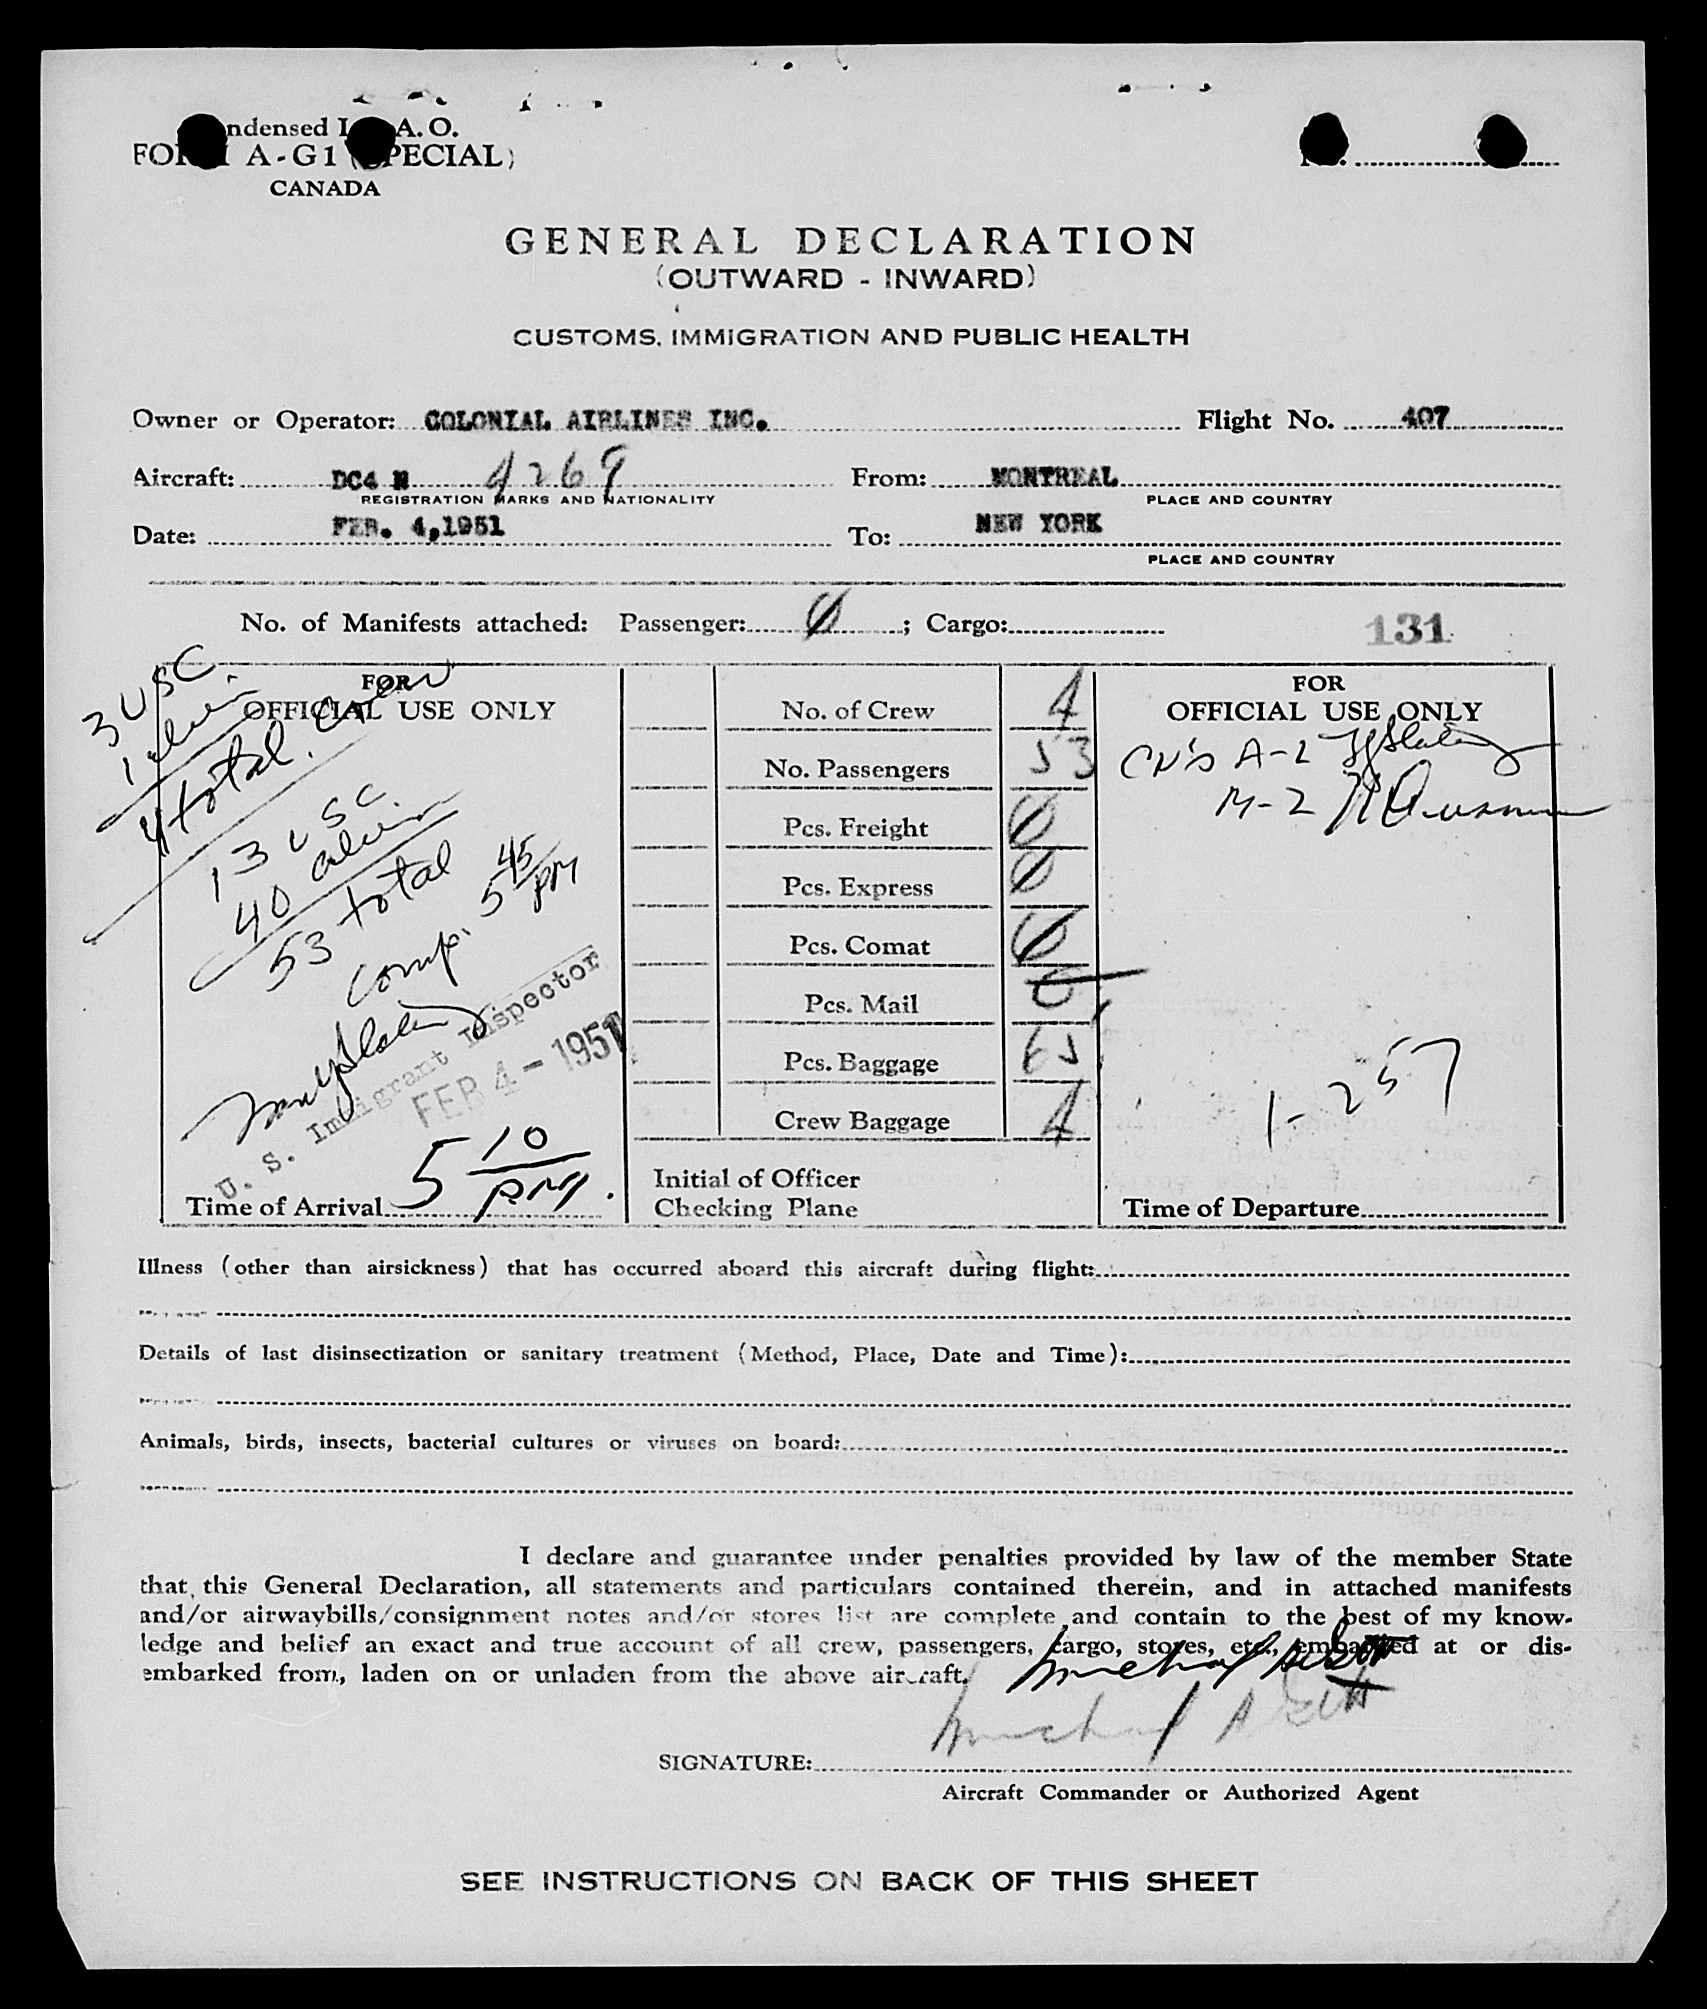 ndensed I A. O.
FORM A-G1 (SPECIAL)
CANADA
No.
GENERAL DECLARATION
(OUTWARD - INWARD)
CUSTOMS, IMMIGRATION AND PUBLIC HEALTH
Owner or Operator: COLONIAL AIRLINES INC. Flight No. 407
Aircraft: DC4 N 4269 From: MONTREAL
REGISTRATION MARKS AND NATIONALITY PLACE AND COUNTRY
Date: FEB. 4,1951 To: NEW YORK
PLACE AND COUNTRY
No. of Manifests attached: Passenger: 0 ; Cargo: 131
FOR
OFFICIAL USE ONLY
3 USC.
1 alien
4 total. crew
13 USC.
40 alien
53 total
comp. 5 45 PM
U. S. Immigrant Inspector
FEB 4 - 1951
Time of Arrival 5 10 PM.
No. of Crew 4
No. Passengers 53
Pcs. Freight 0
Pcs. Express 0
Pcs. Comat 0
Pcs. Mail 0
Pcs. Baggage 65
Crew Baggage 4
Initial of Officer
Checking Plane
FOR
OFFICIAL USE ONLY
A-2
M-2
1-257
Time of Departure
Illness (other than airsickness) that has occurred aboard this aircraft during flight:
Details of last disinsectization or sanitary treatment (Method, Place, Date and Time):
Animals, birds, insects, bacterial cultures or viruses on board:
I declare and guarantee under penalties provided by law of the member State
that this General Declaration, all statements and particulars contained therein, and in attached manifests
and/or airwaybills/consignment notes and/or stores list are complete and contain to the best of my know-
ledge and belief an exact and true account of all crew, passengers, cargo, stores, etc., embarked at or dis-
embarked from, laden on or unladen from the above aircraft.
SIGNATURE:
Aircraft Commander or Authorized Agent
SEE INSTRUCTIONS ON BACK OF THIS SHEET